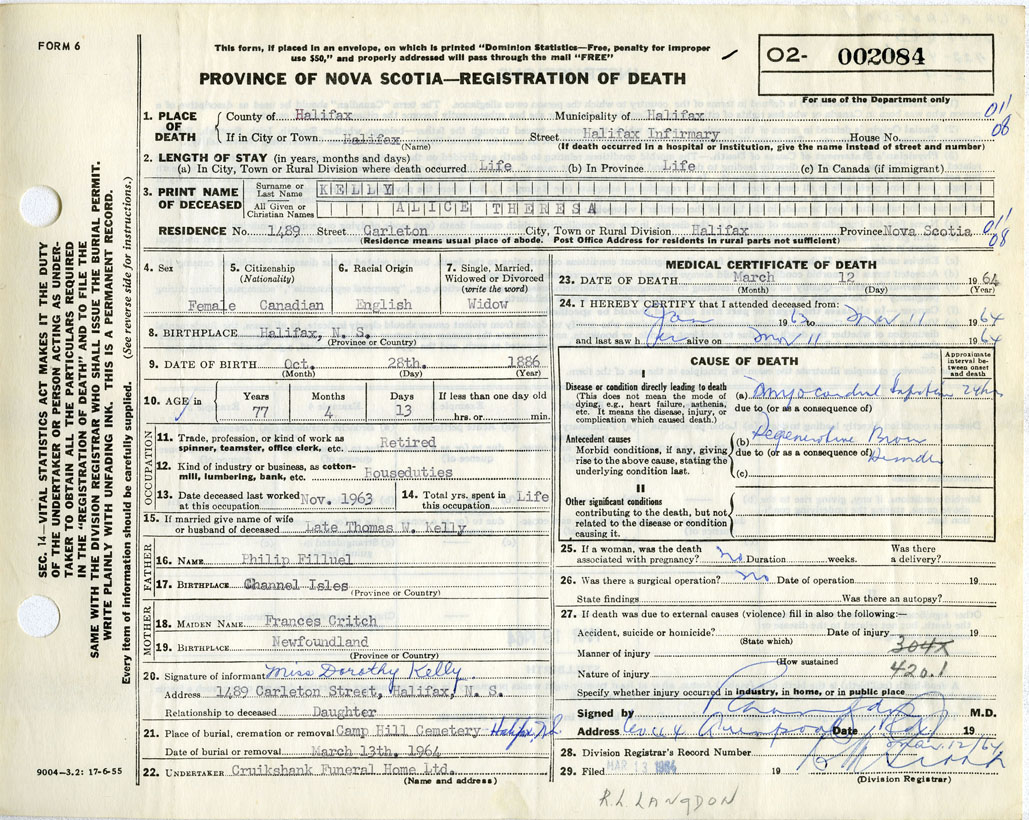 FORM 6
This form, if placed in an envelope, on which is printed "Dominion Statistics—Free, penalty for improper
use $50," and properly addressed will pass through the mail "FREE"
PROVINCE OF NOVA SCOTIA—REGISTRATION OF DEATH
02- 002084
For use of the Department only
1. PLACE OF DEATH
County of Halifax Municipality of Halifax
011
06
If in City or Town Halifax Street Halifax Infirmary House No.
(Name) (If death occurred in a hospital or institution, give the name instead of street and number)
2. LENGTH OF STAY (in years, months and days)
(a) In City, Town or Rural Division where death occurred Life (b) In Province Life (c) In Canada (if immigrant)
3. PRINT NAME OF DECEASED
Surname or Last Name KELLY
All Given or Christian Names ALICE THERESA
011
08
RESIDENCE No. 1489 Street Carleton City, Town or Rural Division Halifax Province Nova Scotia
(Residence means usual place of abode. Post Office Address for residents in rural parts not sufficient)
4. Sex
Female
5. Citizenship
(Nationality)
Canadian
6. Racial Origin
English
7. Single, Married,
Widowed or Divorced
(write the word)
Widow
8. BIRTHPLACE Halifax, N. S.
(Province or Country)
9. DATE OF BIRTH Oct. 28th. 1886
(Month) (Day) (Year)
10. AGE in
Years Months Days If less than one day old
77 4 13 hrs. or min.
OCCUPATION
11. Trade, profession, or kind of work as
spinner, teamster, office clerk, etc. Retired
12. Kind of industry or business, as cotton-
mill, lumbering, bank, etc. Houseduties
13. Date deceased last worked
at this occupation Nov. 1963
14. Total yrs. spent in
this occupation Life
15. If married give name of wife
or husband of deceased Late Thomas W. Kelly
FATHER
16. NAME Philip Filluel
17. BIRTHPLACE Channel Isles
(Province or Country)
MOTHER
18. MAIDEN NAME Frances Critch
19. BIRTHPLACE Newfoundland
(Province or Country)
20. Signature of informant Miss Dorothy Kelly
Address 1489 Carleton Street, Halifax, N. S.
Relationship to deceased Daughter
21. Place of burial, cremation or removal Camp Hill Cemetery - Halifax, N.S.
Date of burial or removal March 13th. 1964
22. UNDERTAKER Cruikshank Funeral Home Ltd.
(Name and address)
MEDICAL CERTIFICATE OF DEATH
23. DATE OF DEATH March 12 1964
(Month) (Day) (Year)
24. I HEREBY CERTIFY that I attended deceased from:
Jan 1963 to Mar 11 1964
and last saw her alive on Mar 11 1964
CAUSE OF DEATH
Approximate interval between onset and death
I
Disease or condition directly leading to death
(This does not mean the mode of
dying, e.g., heart failure, asthenia,
etc. It means the disease, injury, or
complication which caused death.)
(a) 24 hrs
due to (or as a consequence of)
Antecedent causes
Morbid conditions, if any, giving
rise to the above cause, stating the
underlying condition last.
(b) Degenerative Brain
due to (or as a consequence of) Disorder
(c)
II
Other significant conditions
contributing to the death, but not
related to the disease or condition
causing it.
25. If a woman, was the death
associated with pregnancy? No Duration weeks. Was there
a delivery?
26. Was there a surgical operation? No Date of operation 19
State findings Was there an autopsy?
27. If death was due to external causes (violence) fill in also the following:—
Accident, suicide or homicide? Date of injury 19
(State which)
Manner of injury 304X
(How sustained
Nature of injury 420.1
Specify whether injury occurred in industry, in home, or in public place
Signed by M.D.
Address Date 19
Mar. 12/64
28. Division Registrar's Record Number
29. Filed MAR 13 1964 19
(Division Registrar)
R. L. LANGDON
9004—3.2: 17-6-55
SEC. 14—VITAL STATISTICS ACT MAKES IT THE DUTY
OF THE UNDERTAKER OR PERSON ACTING AS UNDER-
TAKER TO OBTAIN ALL THE PARTICULARS REQUIRED
IN THE "REGISTRATION OF DEATH" AND TO FILE THE
SAME WITH THE DIVISION REGISTRAR WHO SHALL ISSUE THE BURIAL PERMIT.
WRITE PLAINLY WITH UNFADING INK. THIS IS A PERMANENT RECORD.
Every item of information should be carefully supplied. (See reverse side for instructions.)